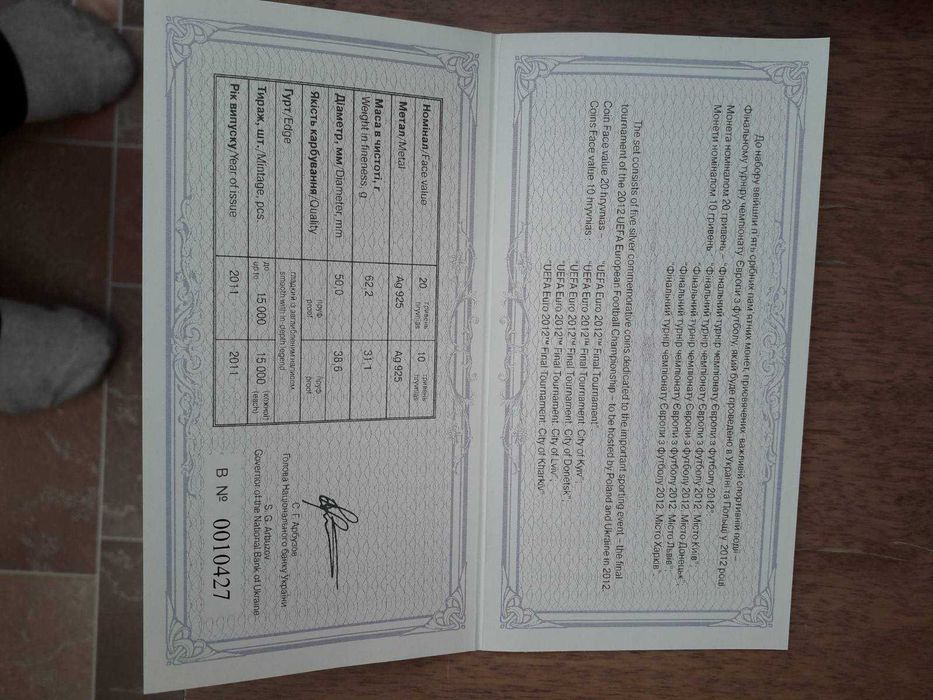 До набору ввійшли п'ять срібних пам'ятних монет, присвячених важливій спортивній події –
Фінальному турніру чемпіонату Європи з футболу, який буде проведено в Україні та Польщі у 2012 році
Монета номіналом 20 гривень "Фінальний турнір чемпіонату Європи з футболу 2012";
Монети номіналом 10 гривень "Фінальний турнір чемпіонату Європи з футболу 2012. Місто Київ";
"Фінальний турнір чемпіонату Європи з футболу 2012. Місто Донецьк";
"Фінальний турнір чемпіонату Європи з футболу 2012. Місто Львів";
"Фінальний турнір чемпіонату Європи з футболу 2012. Місто Харків".
The set consists of five silver commemorative coins dedicated to the important sporting event – the final
tournament of the 2012 UEFA European Football Championship – to be hosted by Poland and Ukraine in 2012.
Coin Face value 20 hryvnias – "UEFA Euro 2012™ Final Tournament"
Coins Face value 10 hryvnias "UEFA Euro 2012™ Final Tournament. City of Kyiv";
"UEFA Euro 2012™ Final Tournament. City of Donetsk";
"UEFA Euro 2012™ Final Tournament. City of Lviv";
"UEFA Euro 2012™ Final Tournament. City of Kharkiv"
Номінал/Face value 20 гривень hryvnias 10 гривень hryvnias
Метал/Metal Ag 925 Ag 925
Маса в чистоті, г
Weight in fineness, g 62,2 31,1
Діаметр, мм/Diameter, mm 50,0 38,6
Якість карбування/Quality пруф proof пруф proof
Гурт/Edge гладкий із заглибленим написом
smooth with in-depth legend
Тираж, шт./Mintage, pcs до up to 15 000 15 000 (кожної) (each)
Рік випуску/Year of issue 2011 2011
С. Г. Арбузов
Голова Національного банку України
S. G. Arbuzov
Governor of the National Bank of Ukraine
В № 0010427